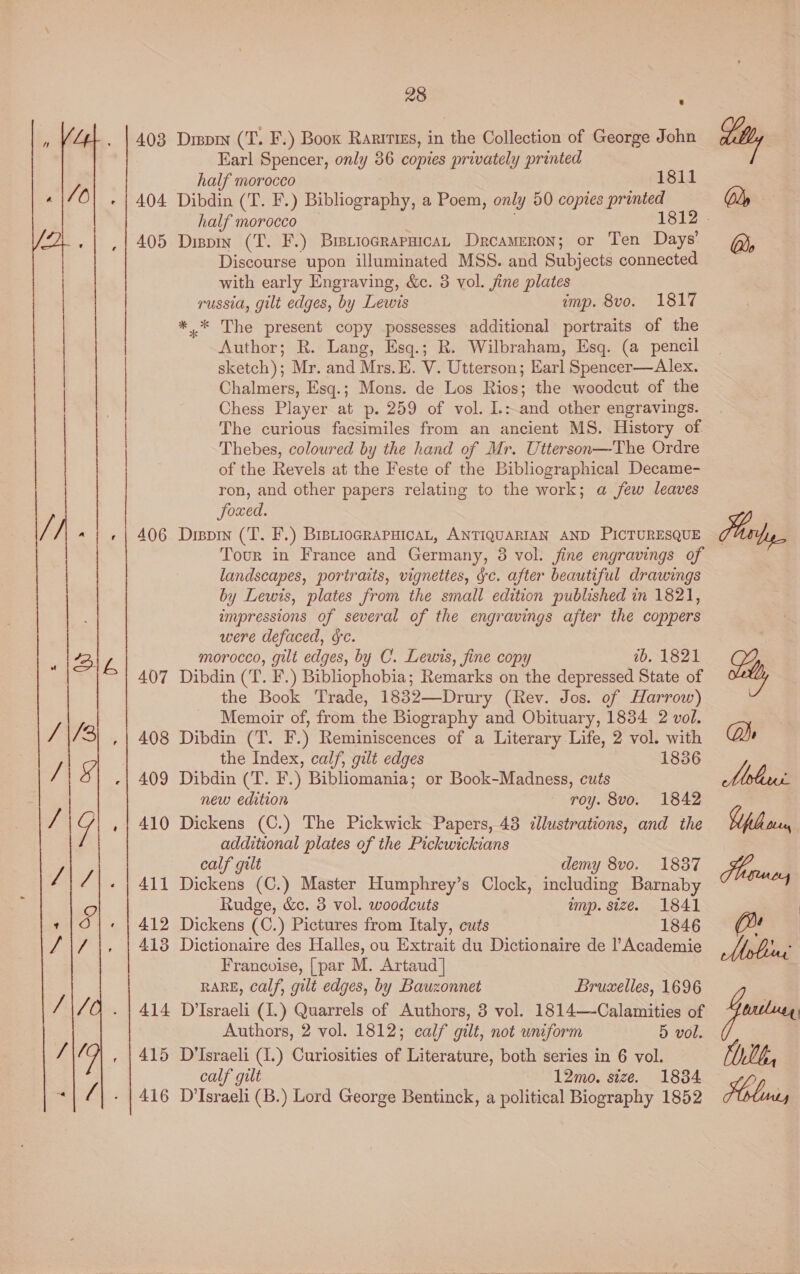 28
" 14 . 403 Dibdin (T. F.) Book Rarities, in the Collection of George John Lilly
Earl Spencer, only 36 copies privately printed
half morocco 1811
" 10 . 404 Dibdin (T. F.) Bibliography, a Poem, only 50 copies printed
half morocco 1812
12 . . 405 Dibdin (T. F.) Bibliographical Decameron; or Ten Days'
Discourse upon illuminated MSS. and Subjects connected
with early Engraving, &c. 3 vol. fine plates
russia, gilt edges, by Lewis imp. 8vo. 1817
*** The present copy possesses additional portraits of the
Author; R. Lang, Esq.; R. Wilbraham, Esq. (a pencil
sketch); Mr. and Mrs. E. V. Utterson; Earl Spencer—Alex.
Chalmers, Esq.; Mons. de Los Rios; the woodcut of the
Chess Player at p. 259 of vol. I.: and other engravings.
The curious facsimiles from an ancient MS. History of
Thebes, coloured by the hand of Mr. Utterson—The Ordre
of the Revels at the Feste of the Bibliographical Decame-
ron, and other papers relating to the work; a few leaves
foxed.
11 " . 406 Dibdin (T. F.) Bibliographical, Antiquarian and Picturesque
Tour in France and Germany, 3 vol. fine engravings of
landscapes, portraits, vignettes, &c. after beautiful drawings
by Lewis, plates from the small edition published in 1821,
impressions of several of the engravings after the coppers
were defaced, &c.
morocco, gilt edges, by C. Lewis, fine copy ib. 1821
" 3 6 407 Dibdin (T. F.) Bibliophobia; Remarks on the depressed State of Lilly
the Book Trade, 1832—Drury (Rev. Jos. of Harrow)
Memoir of, from the Biography and Obituary, 1834 2 vol.
1 13 . 408 Dibdin (T. F.) Reminiscences of a Literary Life, 2 vol. with
the Index, calf, gilt edges 1836
1 8 . 409 Dibdin (T. F.) Bibliomania; or Book-Madness, cuts Molini
new edition roy. 8vo. 1842
1 9 . 410 Dickens (C.) The Pickwick Papers, 43 illustrations, and the Upham
additional plates of the Pickwickians
calf gilt demy 8vo. 1837
1 1 . 411 Dickens (C.) Master Humphrey's Clock, including Barnaby
Rudge, &c. 3 vol. woodcuts imp. size. 1841
" 8 . 412 Dickens (C.) Pictures from Italy, cuts 1846
1 1 . 413 Dictionaire des Halles, ou Extrait du Dictionaire de l'Academie Molini
Francoise, [par M. Artaud]
RARE, calf, gilt edges, by Bauzonnet Bruxelles, 1696
1 10 . 414 D'Israeli (I.) Quarrels of Authors, 3 vol. 1814—Calamities of
Authors, 2 vol. 1812; calf gilt, not uniform 5 vol.
1 19 . 415 D'Israeli (I.) Curiosities of Literature, both series in 6 vol.
calf gilt 12mo. size. 1834
" 1 . 416 D'Israeli (B.) Lord George Bentinck, a political Biography 1852 Holmes